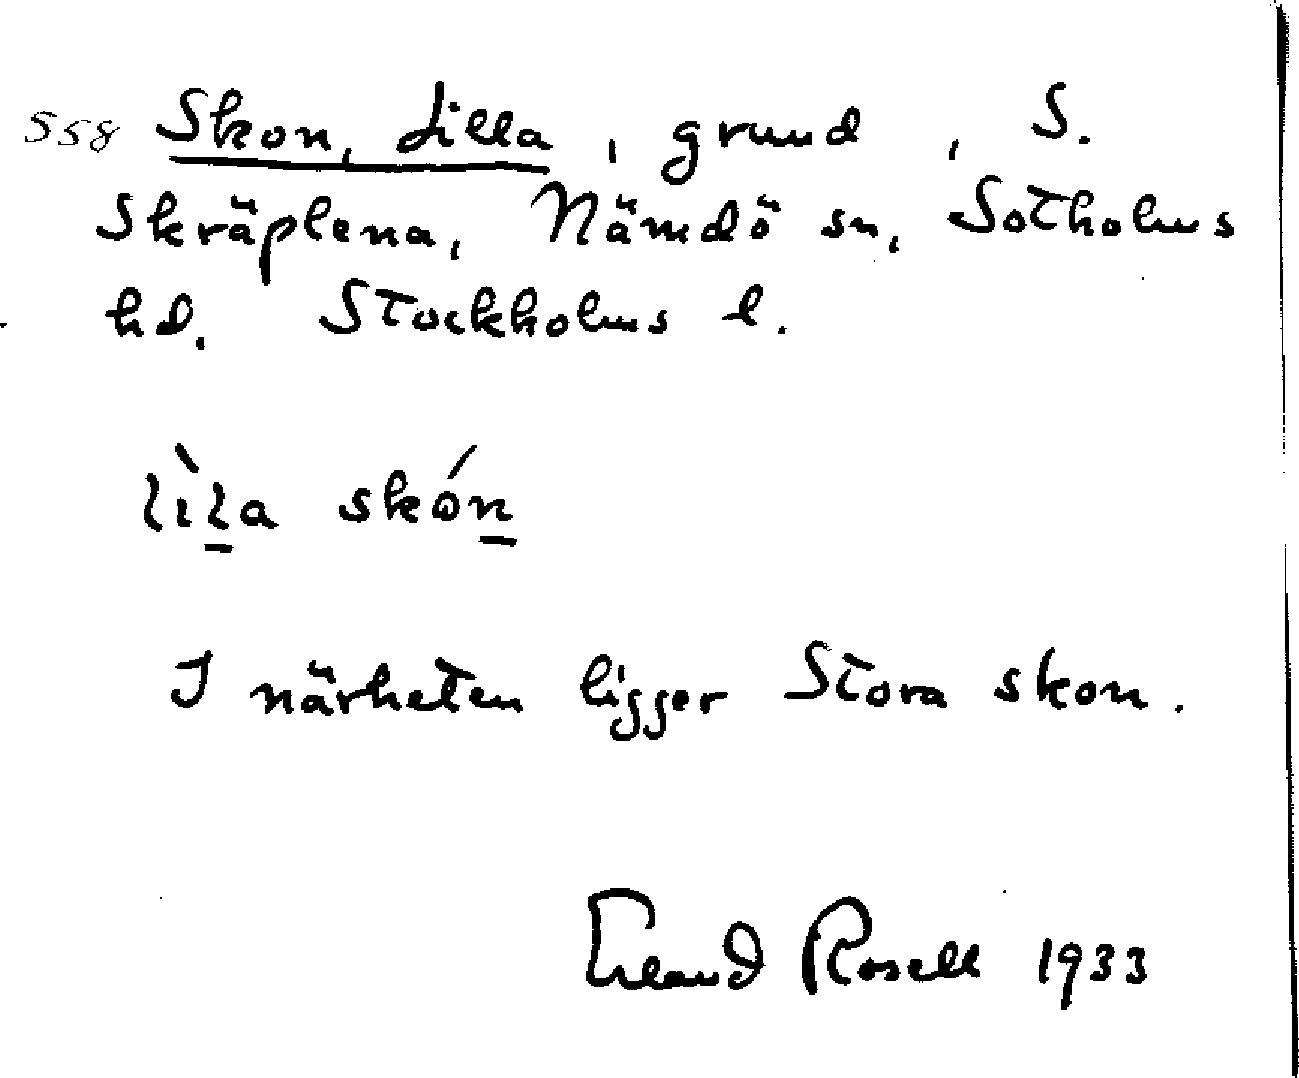 558 Skon, Lilla, grund, S.
Skräplena, Nämdö sn, Sotholms
hd. Stockholms l.
lìl̲a skón̲
I närheten ligger Stora skon.
Erland Rosell 1933